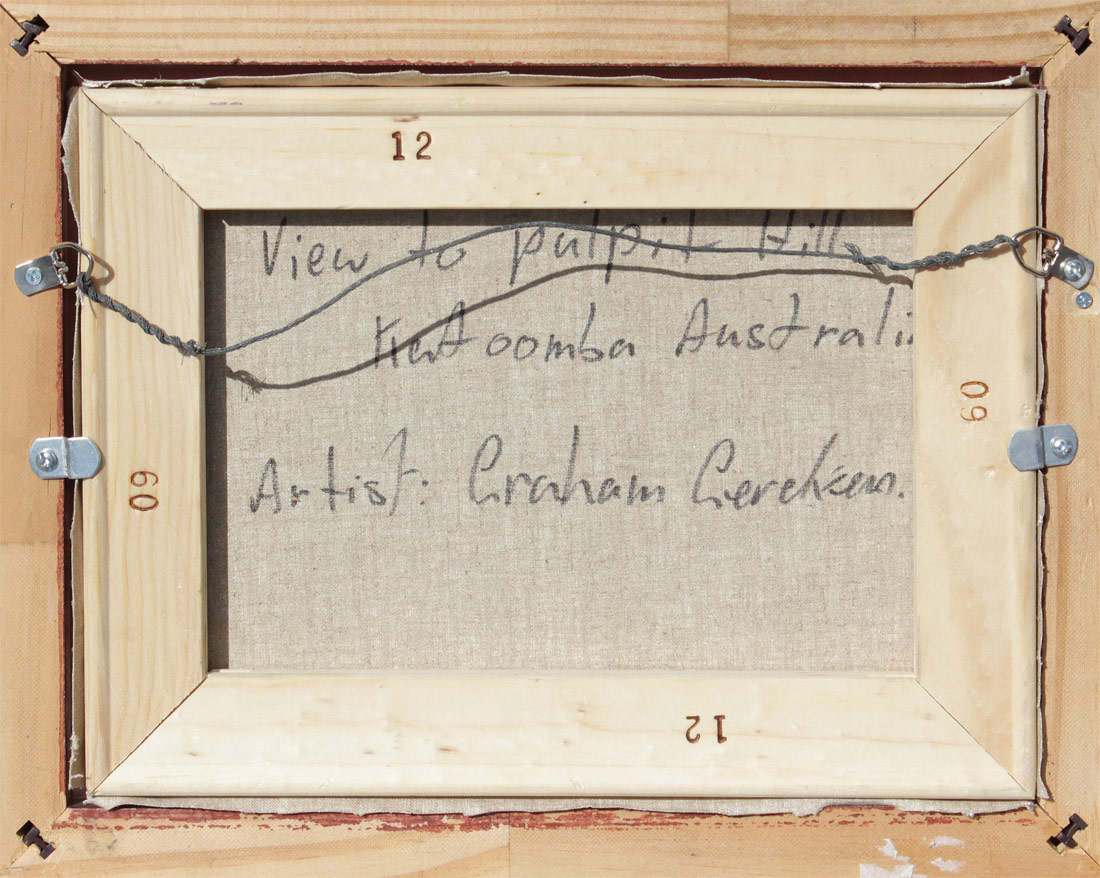 12
View to pulpit Hill
Katoomba Australia
Artist: Graham Gercken.
09
09
12